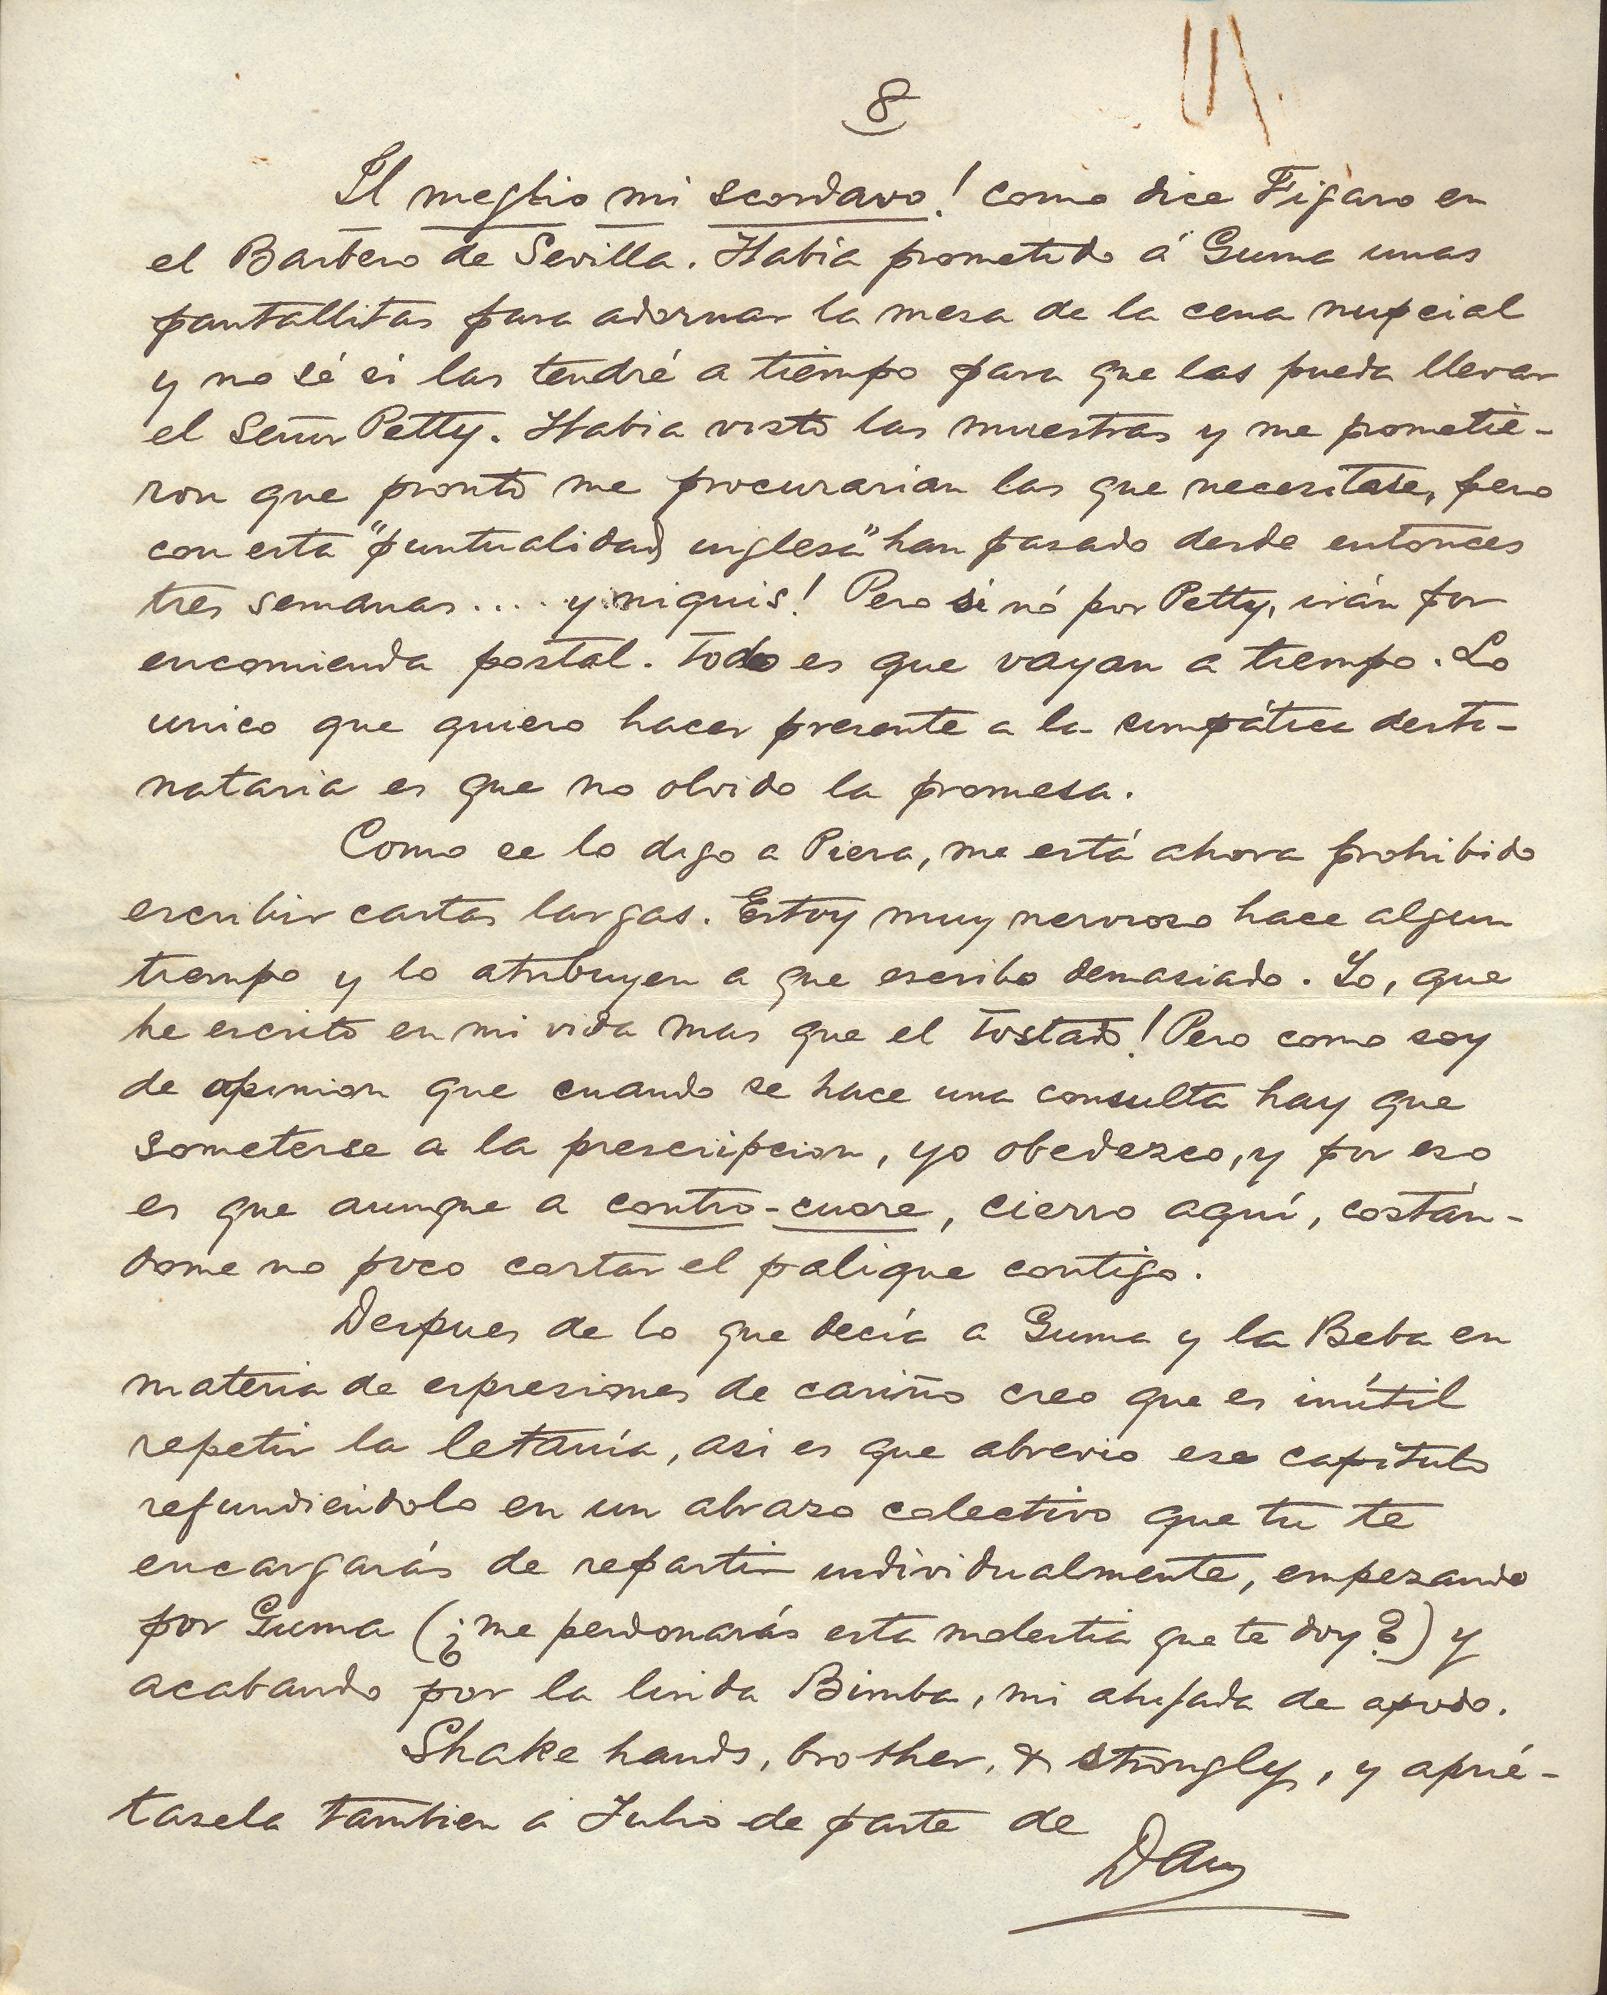 8
Il meglio mi scordavo! como dice Figaro en
el Barbero de Sevilla. Habia prometido á Guma unas
pantallitas para adornar la mesa de la cena nupcial
y no sé si las tendré a tiempo para que las pueda llevar
el Señor Petty. Habia visto las muestras y me prometie-
ron que pronto me procurarian las que necesitase, pero
con esta "puntualidad inglesa" han pasado desde entonces
tres semanas.... y niquis! Pero si nó por Petty, irán por
encomienda postal. Todo es que vayan a tiempo. Lo
unico que quiero hacer presente a la simpática desti-
nataria es que no olvido la promesa.
Como se lo digo a Piera, me está ahora prohibido
escribir cartas largas. Estoy muy nervioso hace algun
tiempo y lo atribuyen a que escribo demasiado. Yo, que
he escrito en mi vida mas que el Tostado! Pero como soy
de opinion que cuando se hace una consulta hay que
someterse a la prescripcion, yo obedezco, y por eso
es que aunque a contro-cuore, cierro aquí, costán-
dome no poco cortar el palique contigo.
Despues de lo que decía a Guma y la Beba en
materia de expresiones de cariño creo que es inútil
repetir la letanía, asi es que abrevio ese capítulo
refundiéndolo en un abrazo colectivo que tu te
encargarás de repartir individualmente, empezando
por Guma (¿me perdonarás esta molestia que te doy?) y
acabando por la linda Bimba, mi ahijada de apodo.
Shake hands, brother, & strongly, y aprié-
tasela tambien a Julio de parte de
Dan